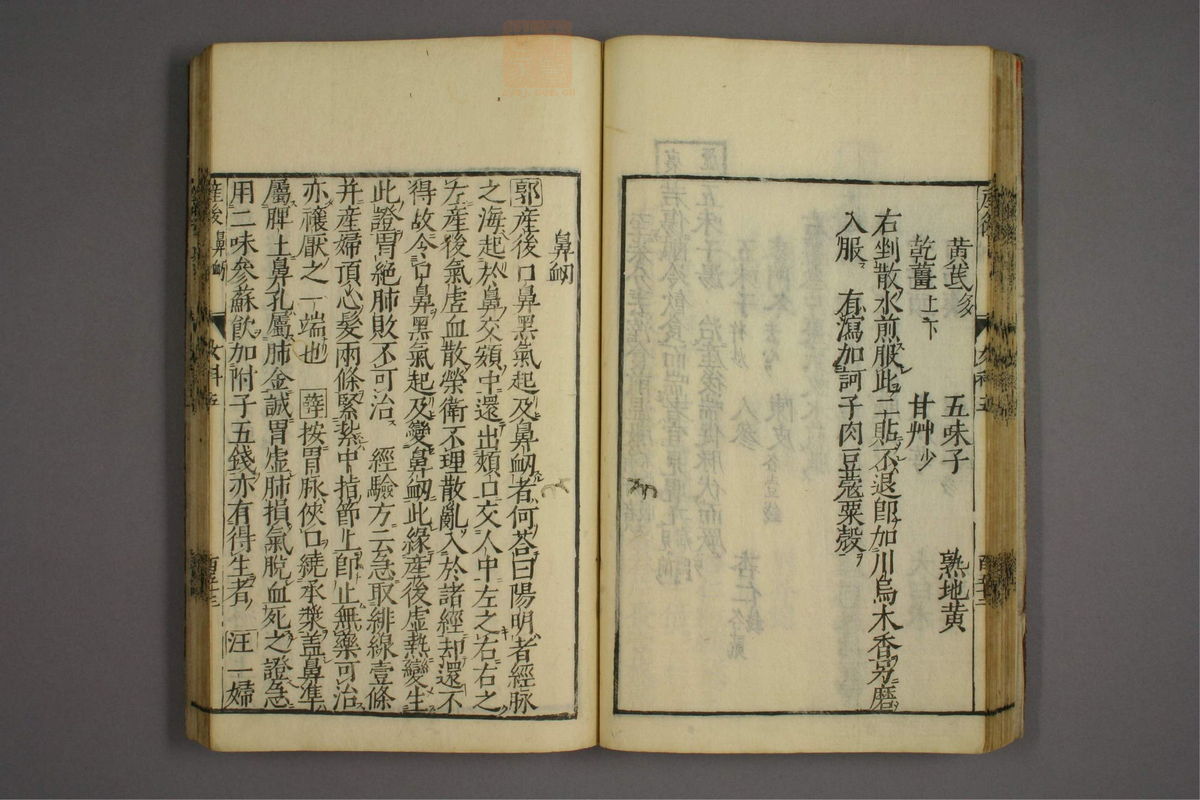 黄芪多 五味子 熟地黄
乾薑上下 甘艸少
右剉散水煎服此二貼不退卽加川烏木香另磨
入服 有瀉加訶子肉豆蔻粟殼
鼻衂
郭産後口鼻黑氣起及鼻衂者何荅曰陽明者經脉
之海起於鼻交頞中還出頰口交人中左之右右之
左産後氣虗血散榮衛不理散亂入於諸經却還不
得故令口鼻黑氣起及變鼻衂此緣産後虚熱變生
此證胃絶肺敗不可治 經驗方云急取緋線壹條
并産婦頂心髮兩條緊紮中指節上卽止無藥可治
亦禳厭之一端也 薛按胃脉俠口繞承漿盖鼻凖
屬脾土鼻孔屬肺金誠胃虚肺損氣脫血死之證急
用二味參蘇飮加附子五錢亦有得生者 汪一婦
産後鼻衂 女科五